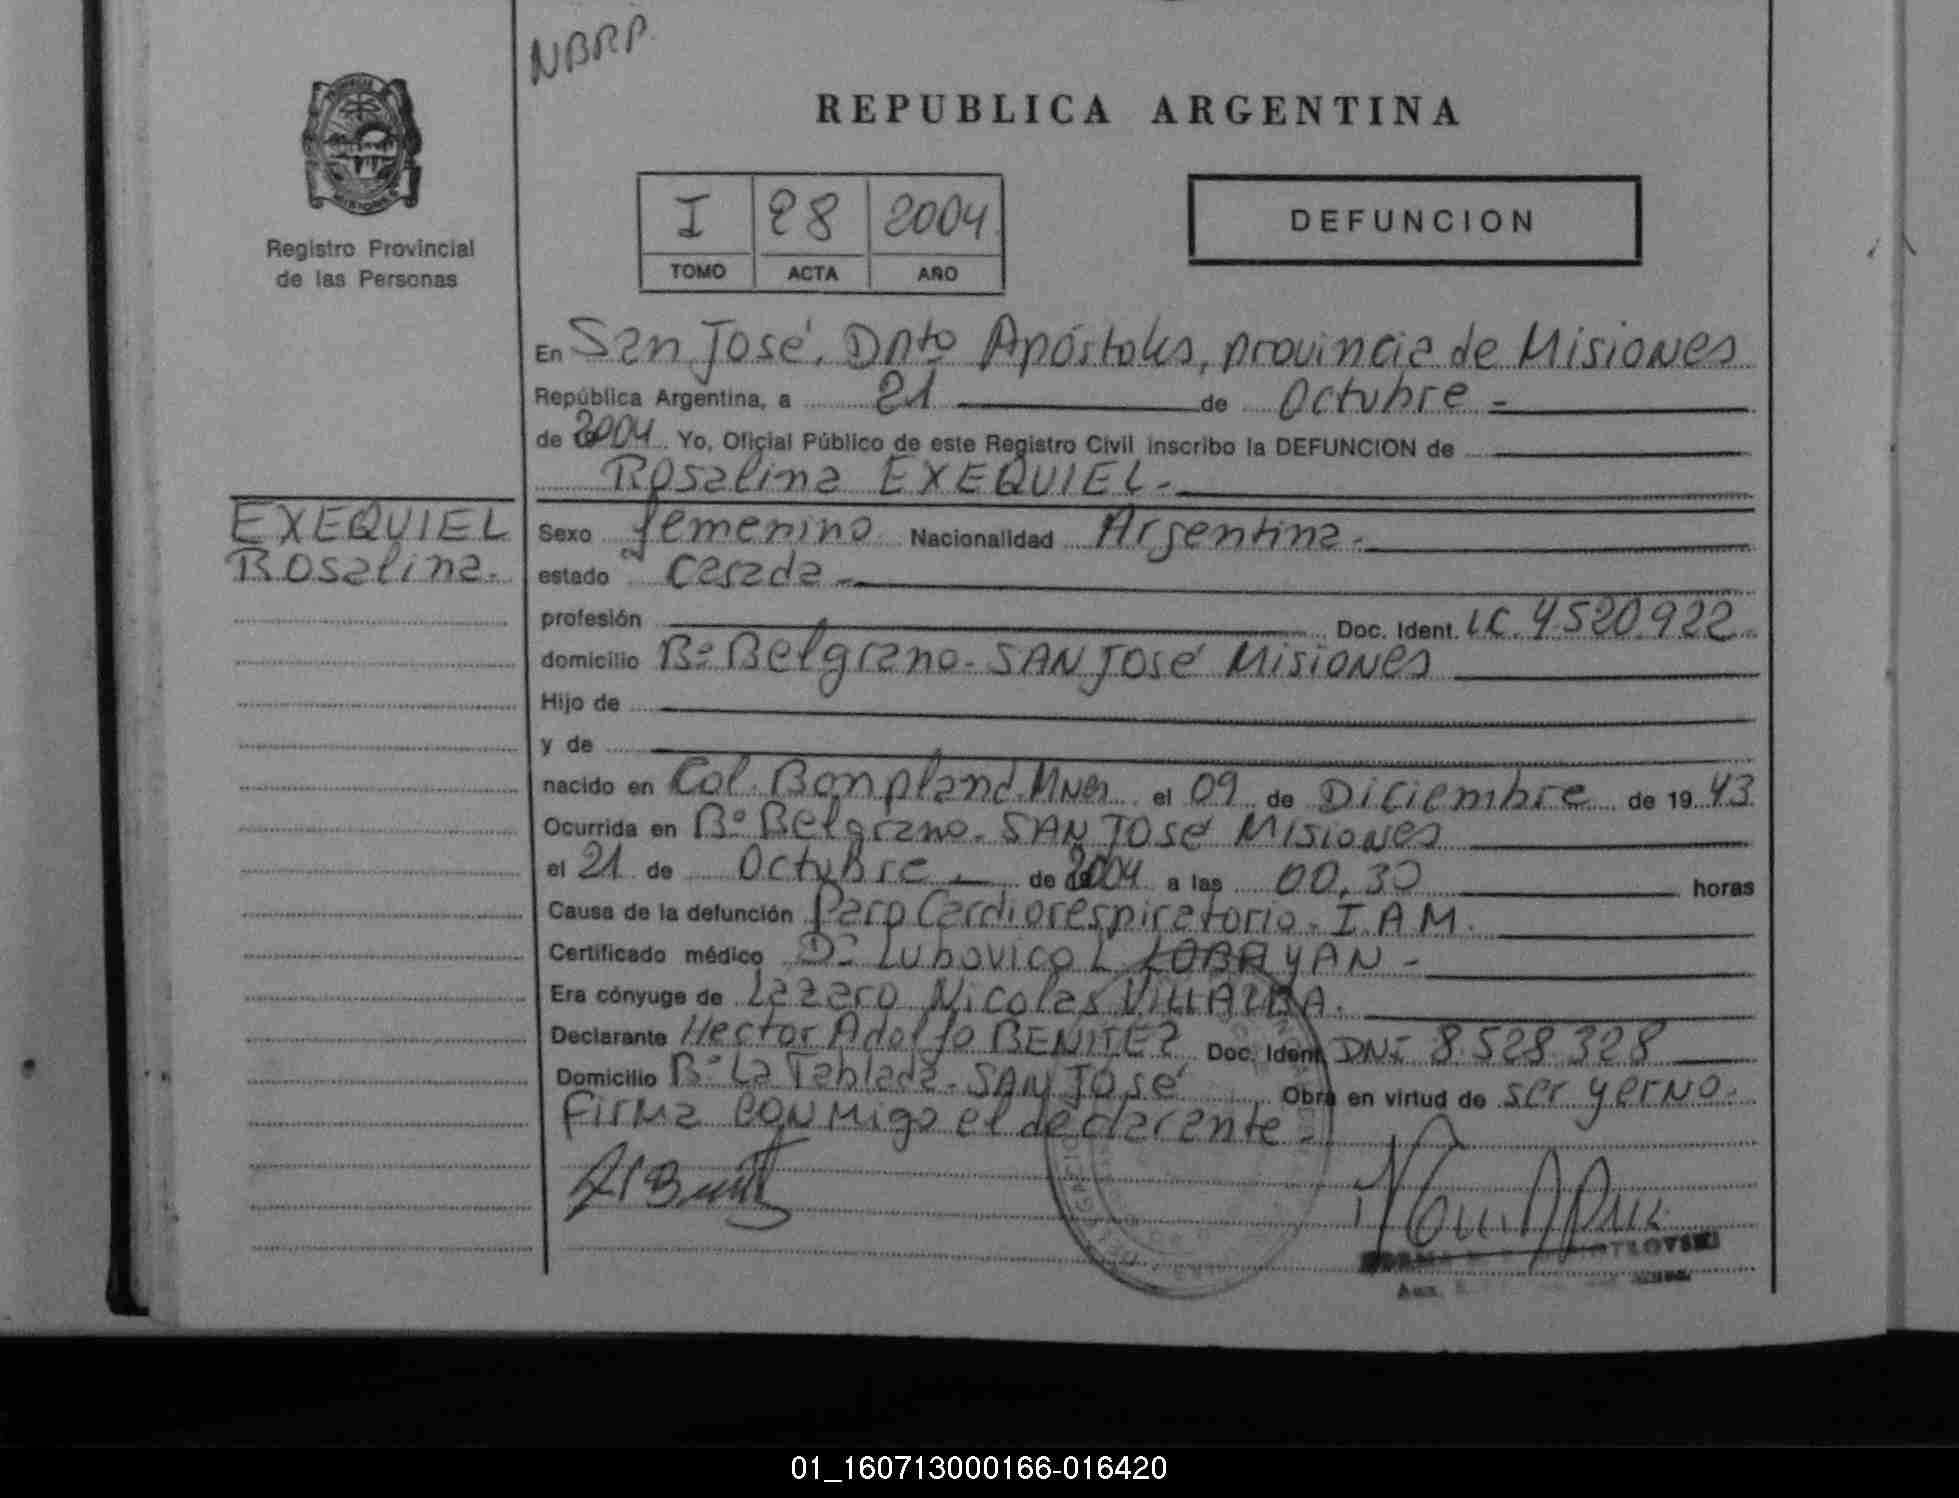 NBRP.
REPUBLICA ARGENTINA
Registro Provincial
de las Personas
I 28 2004
TOMO ACTA AÑO
DEFUNCION
En San José, Dpto Apóstoles, provincia de Misiones
República Argentina, a 21 de Octubre -
de 2004 Yo, Oficial Público de este Registro Civil inscribo la DEFUNCION de
Rosalina EXEQUIEL.-
EXEQUIEL
Rosalina.
Sexo femenino Nacionalidad Argentina.-
estado Casada -
profesión Doc. Ident. LC. 4.520.922
domicilio Bº Belgrano - SAN José Misiones
Hijo de
y de
nacido en Col. Bonpland. Mnes el 09 de Diciembre de 19 43
Ocurrida en Bº Belgrano - SAN José Misiones
el 21 de Octubre - de 2004 a las 00,30 horas
Causa de la defunción Paro Cardiorespiratorio - I.A.M.
Certificado médico Dr Ludovico L LOBAYAN -
Era cónyuge de Lazaro Nicolas VILLALBA.
Declarante Hector Adolfo BENITEZ Doc. Ident. DNI 8.528.328
Domicilio Bº La Tablada - SAN José Obra en virtud de ser yerno.
Firma conmigo el declarante.-
01_160713000166-016420